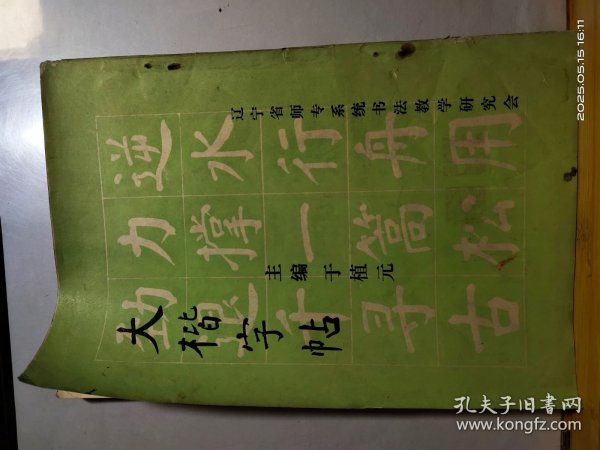 辽宁省师专系统书法教学研究会
逆水行舟用
力撑一篙松
劲退千寻古
主编于植元
大楷字帖
2025.05.15 16:11
孔夫子旧书网
www.kongfz.com